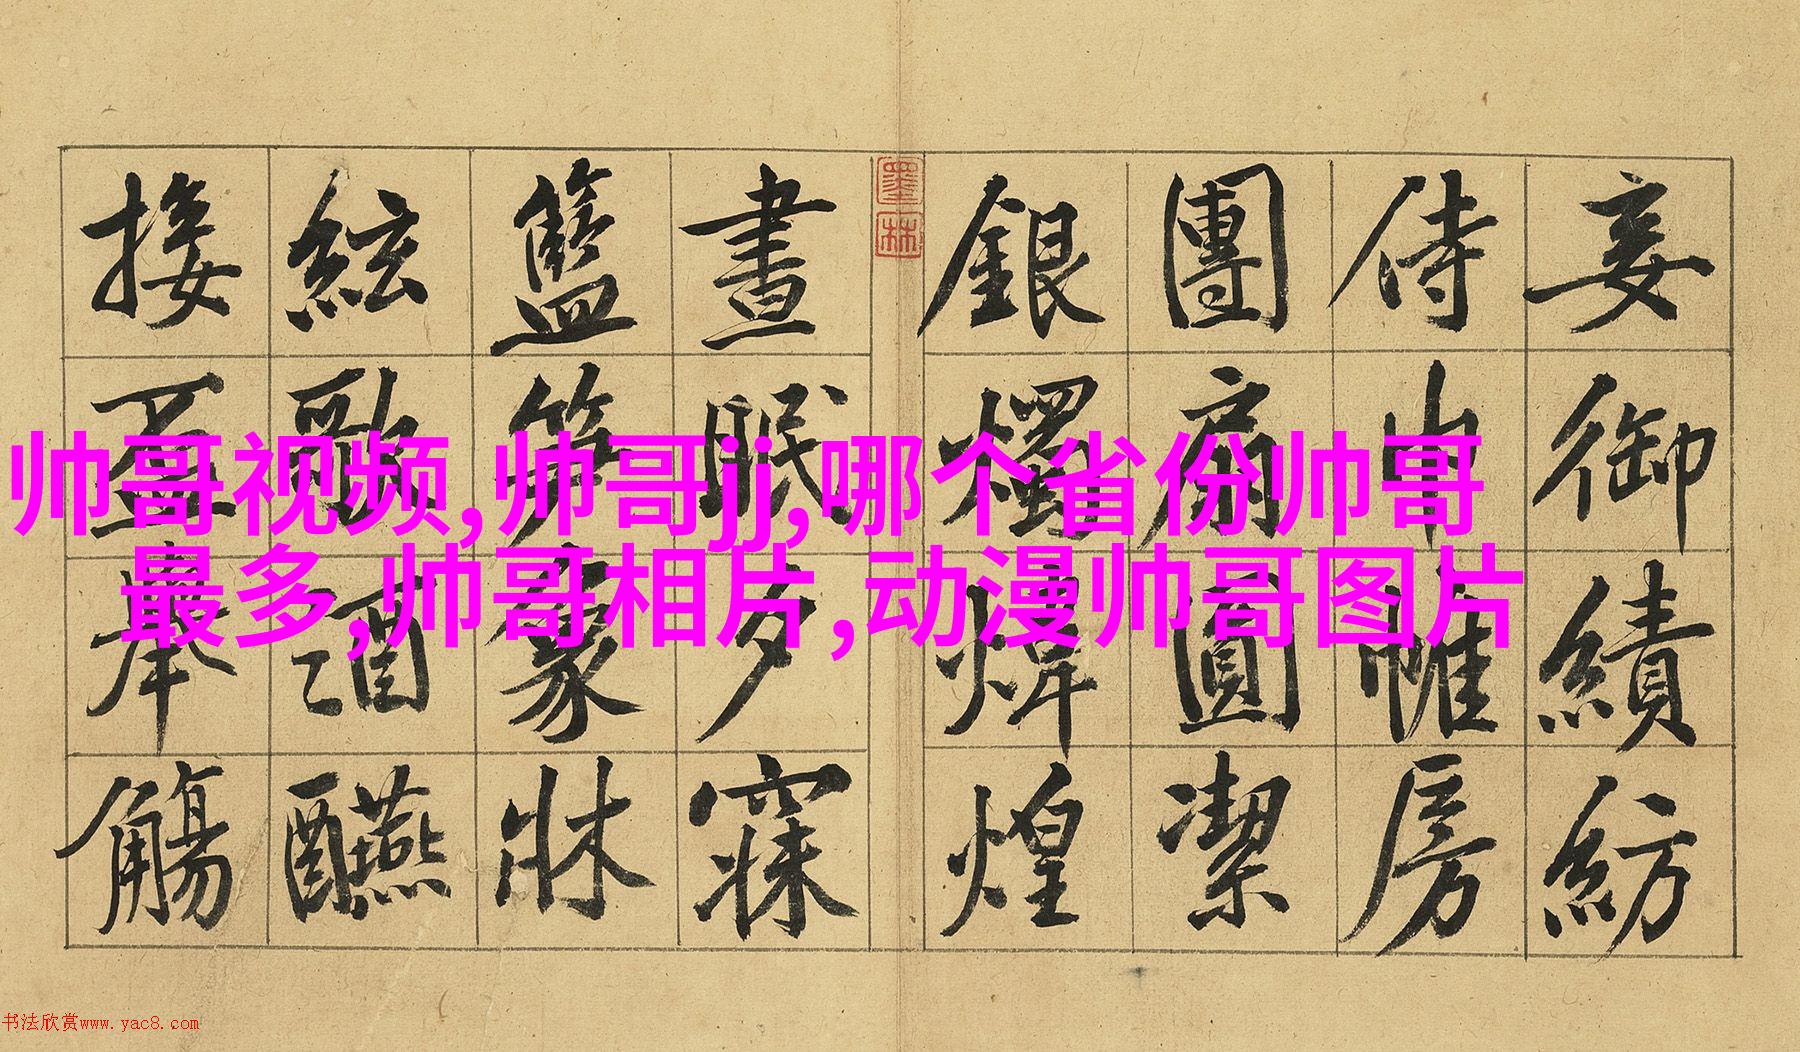 妾御績紡
侍巾帷房
團扇圓潔
銀燭煒煌
墨林
晝眠夕寐
籃笋象牀
絃歌酒醼
接盃舉觴
帅哥视频,帅哥jj,哪个省份帅哥
最多,帅哥相片,动漫帅哥图片
书法欣赏www.yac8.com